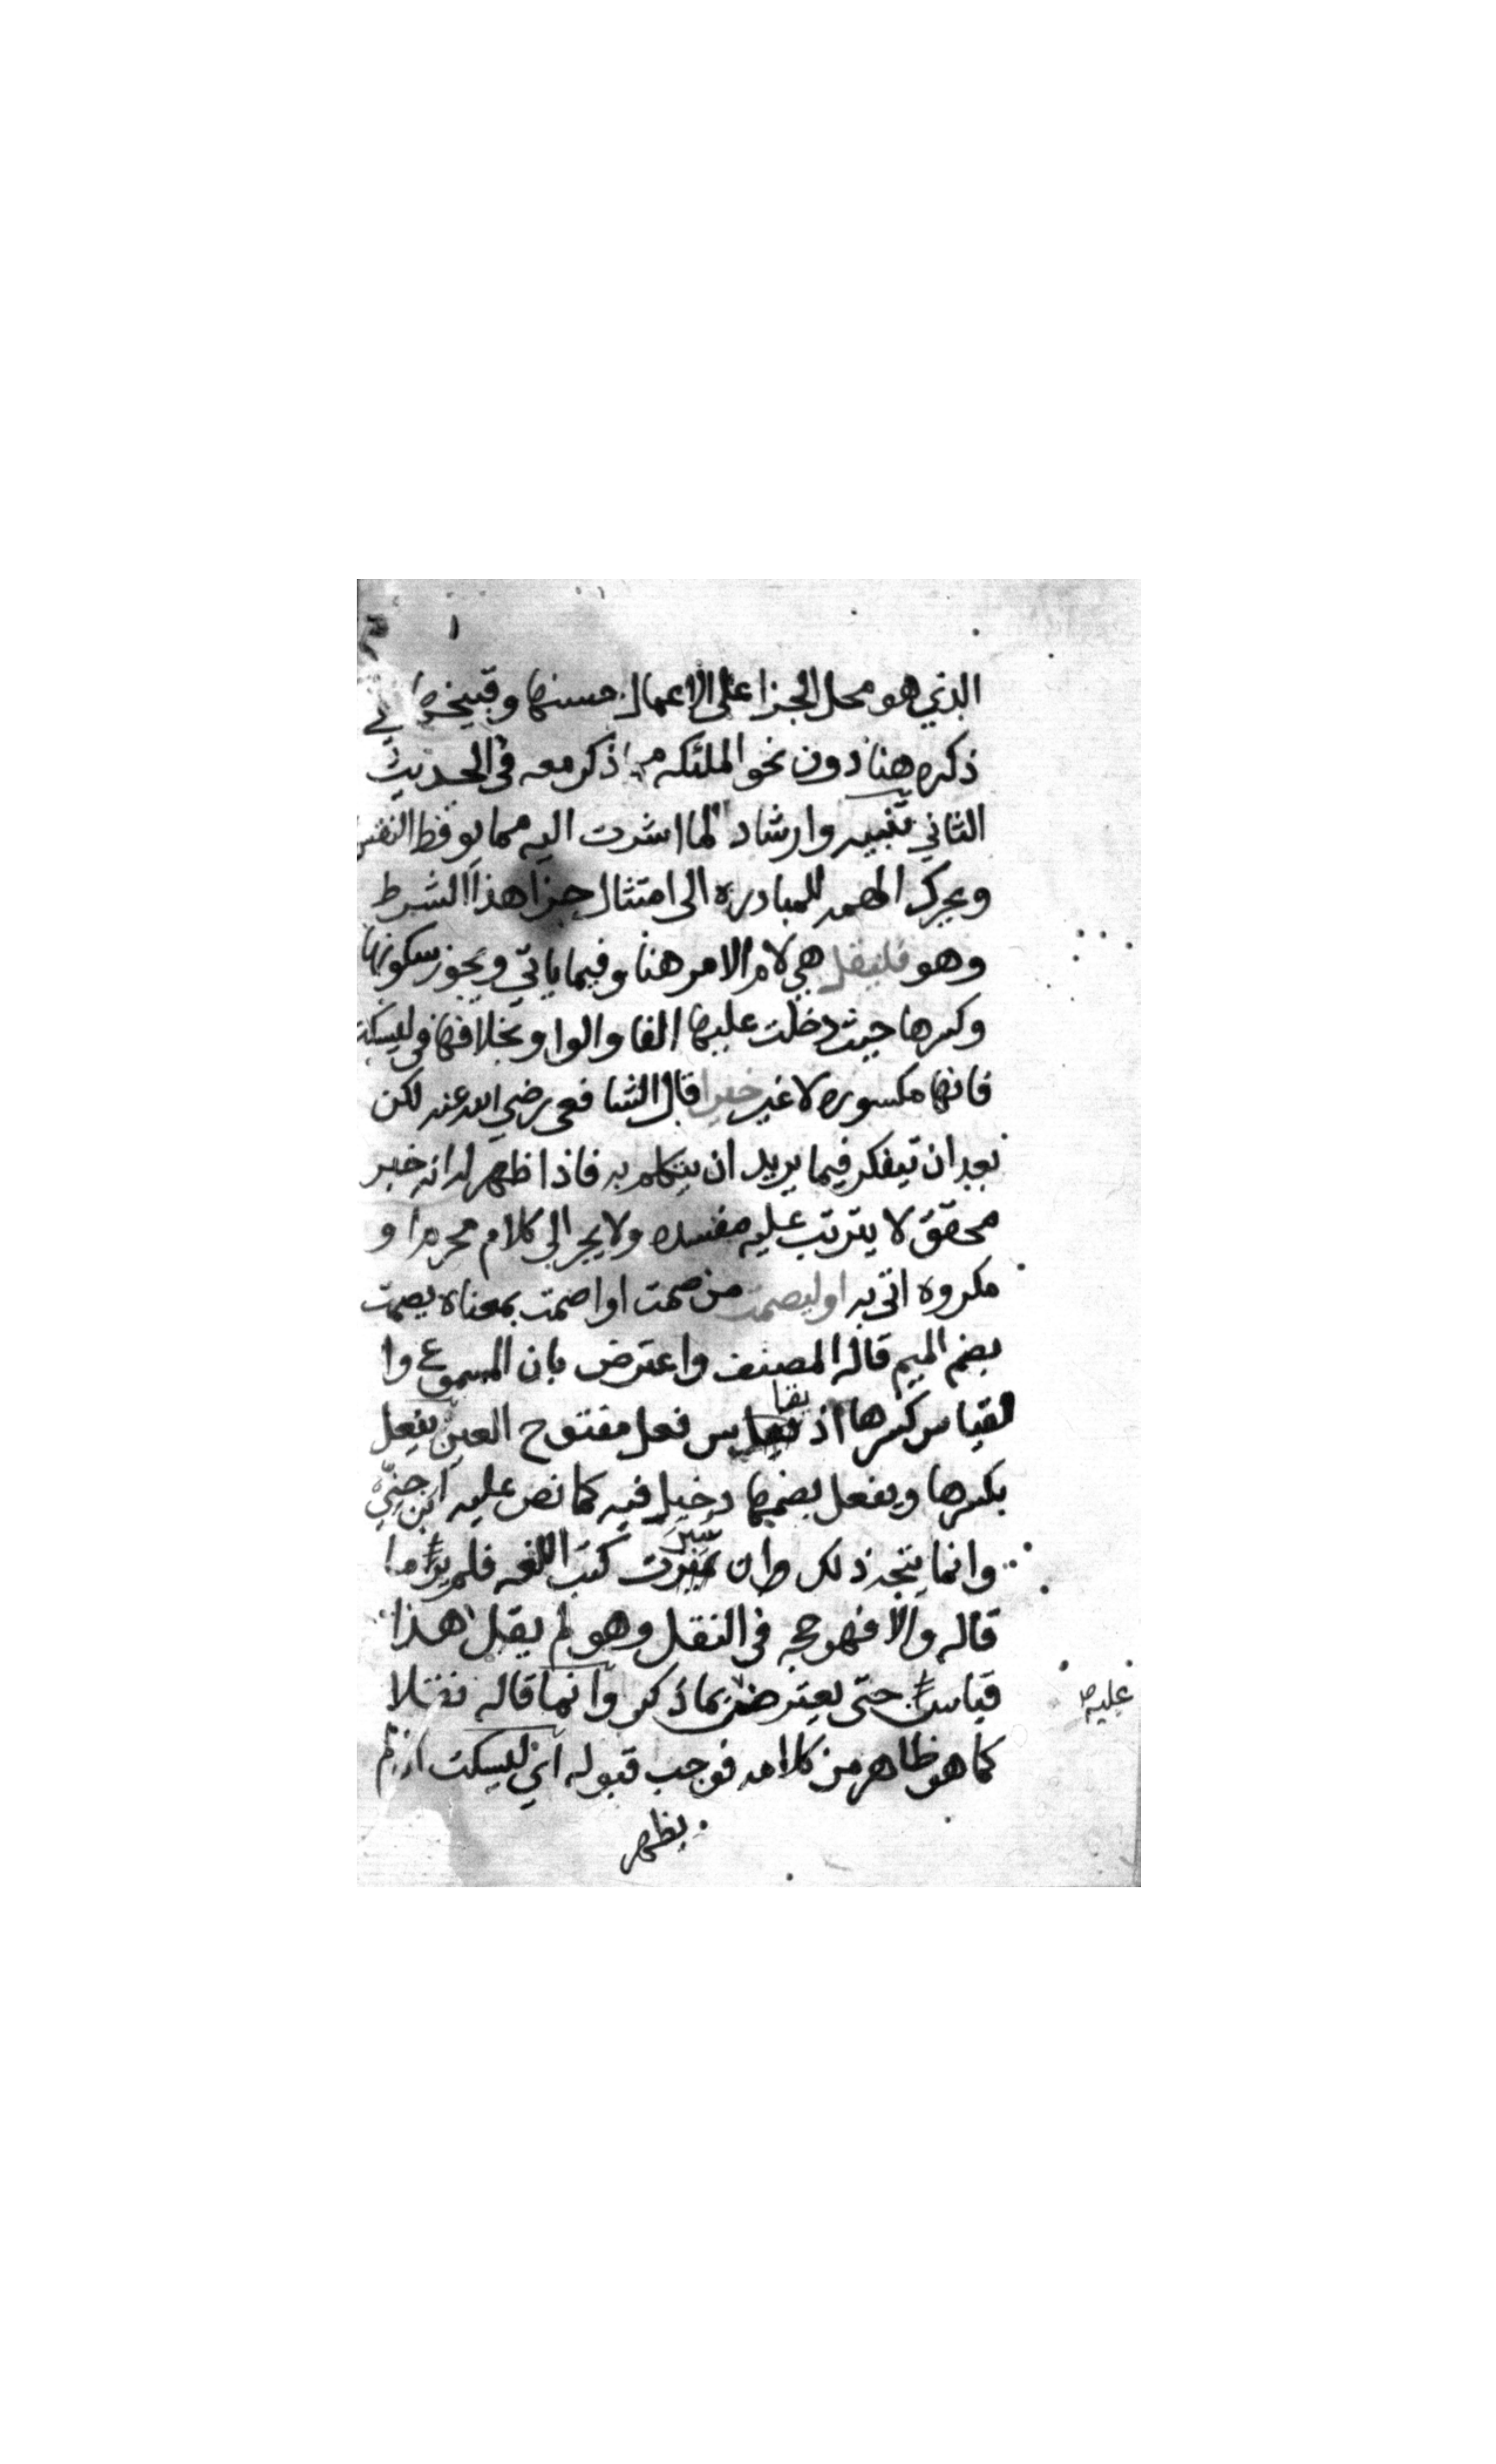 الذي هو محل الجزا على الاعمال حسنها وقبيحها في
ذكره هنا دون نحو الملئكه مما ذكر معه في الحديث
الثاني تنبيه وارشاد لما اشرت اليه مما يوقظ النفس
ويحرك الهمم للمبادره الى امتثال جزا هذا الشرط
وهو فليقل هي لام الامر هنا وفيما ياتي ويجوز سكونها
وكسرها حيث دخلت عليها الفا والواو بخلافها في ليسكت
فانها مكسوره لا غير خيرا قال الشافعي رضي الله عنه لكن
بعد ان يتفكر فيما يريد ان يتكلم به فاذا ظهر له انه خير
محقق لا يترتب عليه مفسده ولا يجر الى كلام محرم او
مكروه اتى به او ليصمت من صمت او اصمت بمعناه يصمت
بضم الميم قاله المصنف واعترض بان المسموع وا
لقياس كسرها اذ يقاس فعل مفتوح العين يفعل
بكسرها ويفعل بضمها دخيل فيه كما نص عليه ابن جني
وانما يتجه ذلك ان سبرت كتب اللغه فلم ير ما
قاله والا فهو حجه في النقل وهو لم يقل هذا
قياسا حتى يعترض بما ذكر وانما قاله نقلا
عليه
كما هو ظاهر من كلامه فوجب قبوله اي ليسكت ان لم
يظهر